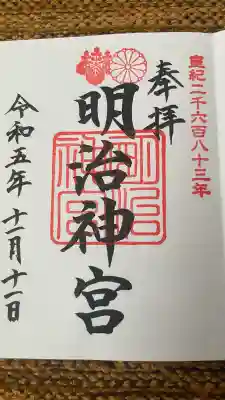 皇紀二千六百八十三年
奉拝
明治神宮
明治神宮
令和五年 十一月十一日